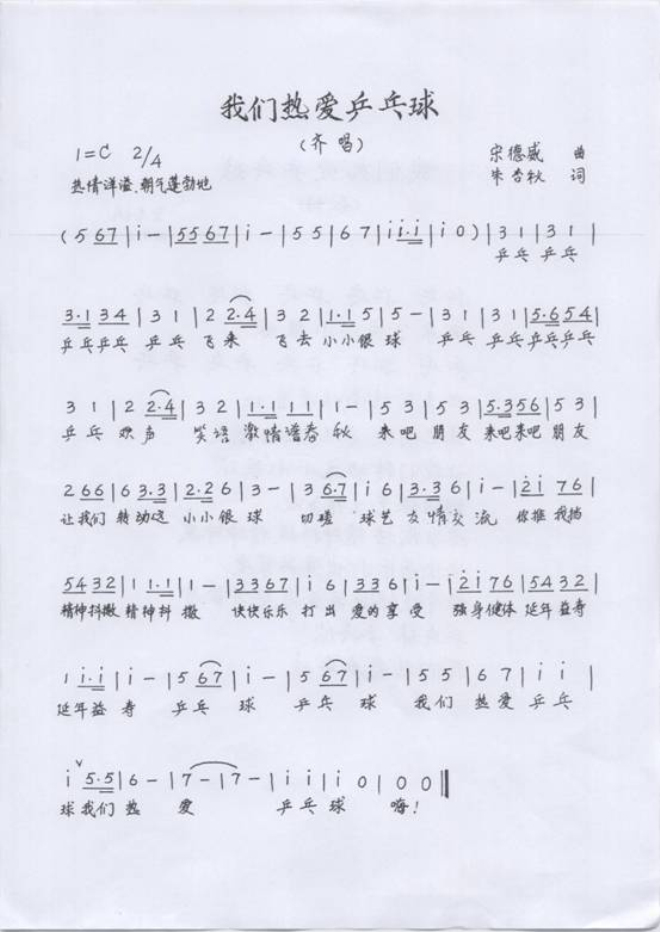 我们热爱乒乓球
（齐唱）
1=C 2/4 宋德威 曲
热情洋溢、朝气蓬勃地 朱杏秋 词
(5 67 | i - | 5567 | i - | 5 5 | 6 7 | i i·i | i 0) | 3 1 | 3 1 |
乒乓 乒乓
3·1 34 | 3 1 | 2 2·4 | 3 2 | 1·1 5 | 5 - | 3 1 | 3 1 | 5·654 |
乒乓乒乓 乒乓 飞来 飞去 小小银球 乒乓 乒乓 乒乓乒乓
3 1 | 2 2·4 | 3 2 | 1·1 11 | 1 - | 5 3 | 5 3 | 5·356 | 5 3 |
乒乓 欢声 笑语 激情谱春秋 来吧 朋友 来吧来吧 朋友
2 66 | 6 3·3 | 2·2 6 | 3 - | 3 6·7 | i 6 | 3·3 6 | i - | 2i 76 |
让我们 转动这 小小银球 切磋 球艺 友情交流 你推我挡
5432 | 1 1·1 | 1 - | 3367 | i 6 | 336 | i - | 2i76 | 5432 |
精神抖擞 精神抖擞 快快乐乐 打出 爱的享受 强身健体 延年益寿
1 i·i | i - | 5 67 | i - | 5 67 | i - | 5 5 | 6 7 | i i |
延年益寿 乒乓球 乒乓球 我们 热爱 乒乓
i ˅ 5·5 | 6 - | 7 - | 7 - | i i | i 0 | 0 ‖
球 我们热 爱 乒乓球 嗨！